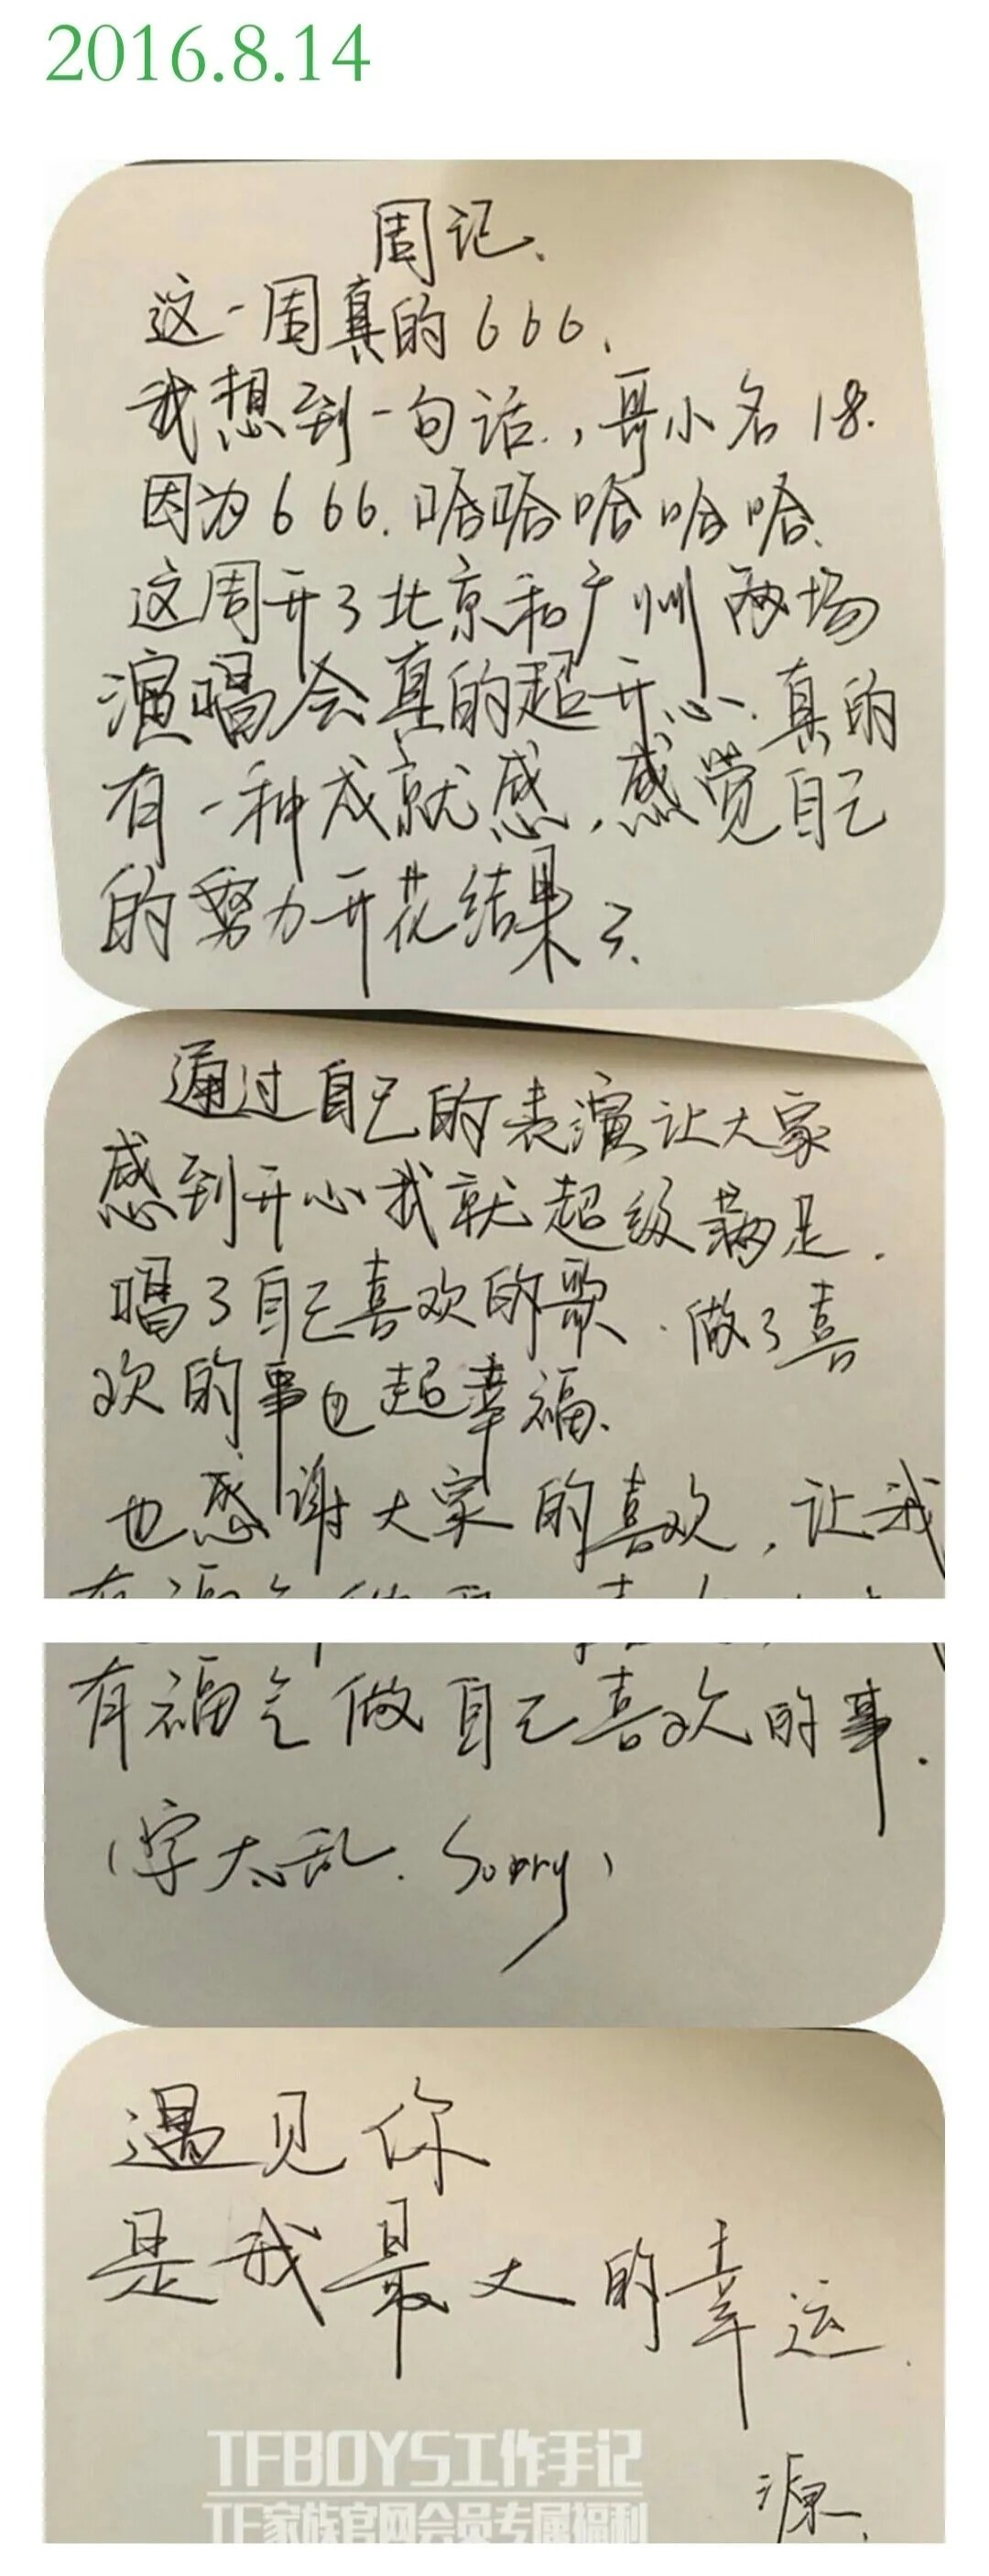 2016.8.14
周记、
这一周真的666、
我想到一句话.,哥小名18.
因为666.哈哈哈哈哈、
这周开了北京和广州两场
演唱会真的超开心.真的
有一种成就感,感觉自己
的努力开花结果了、
通过自己的表演让大家
感到开心我就超级满足.
唱了自己喜欢的歌.做了喜
欢的事也超幸福、
也感谢大家的喜欢,让我
有福气做自己喜欢的事.
(字太乱.Sorry)
遇见你
是我最大的幸运.
TFBOYS工作手记
TF家族官网会员专属福利
源、